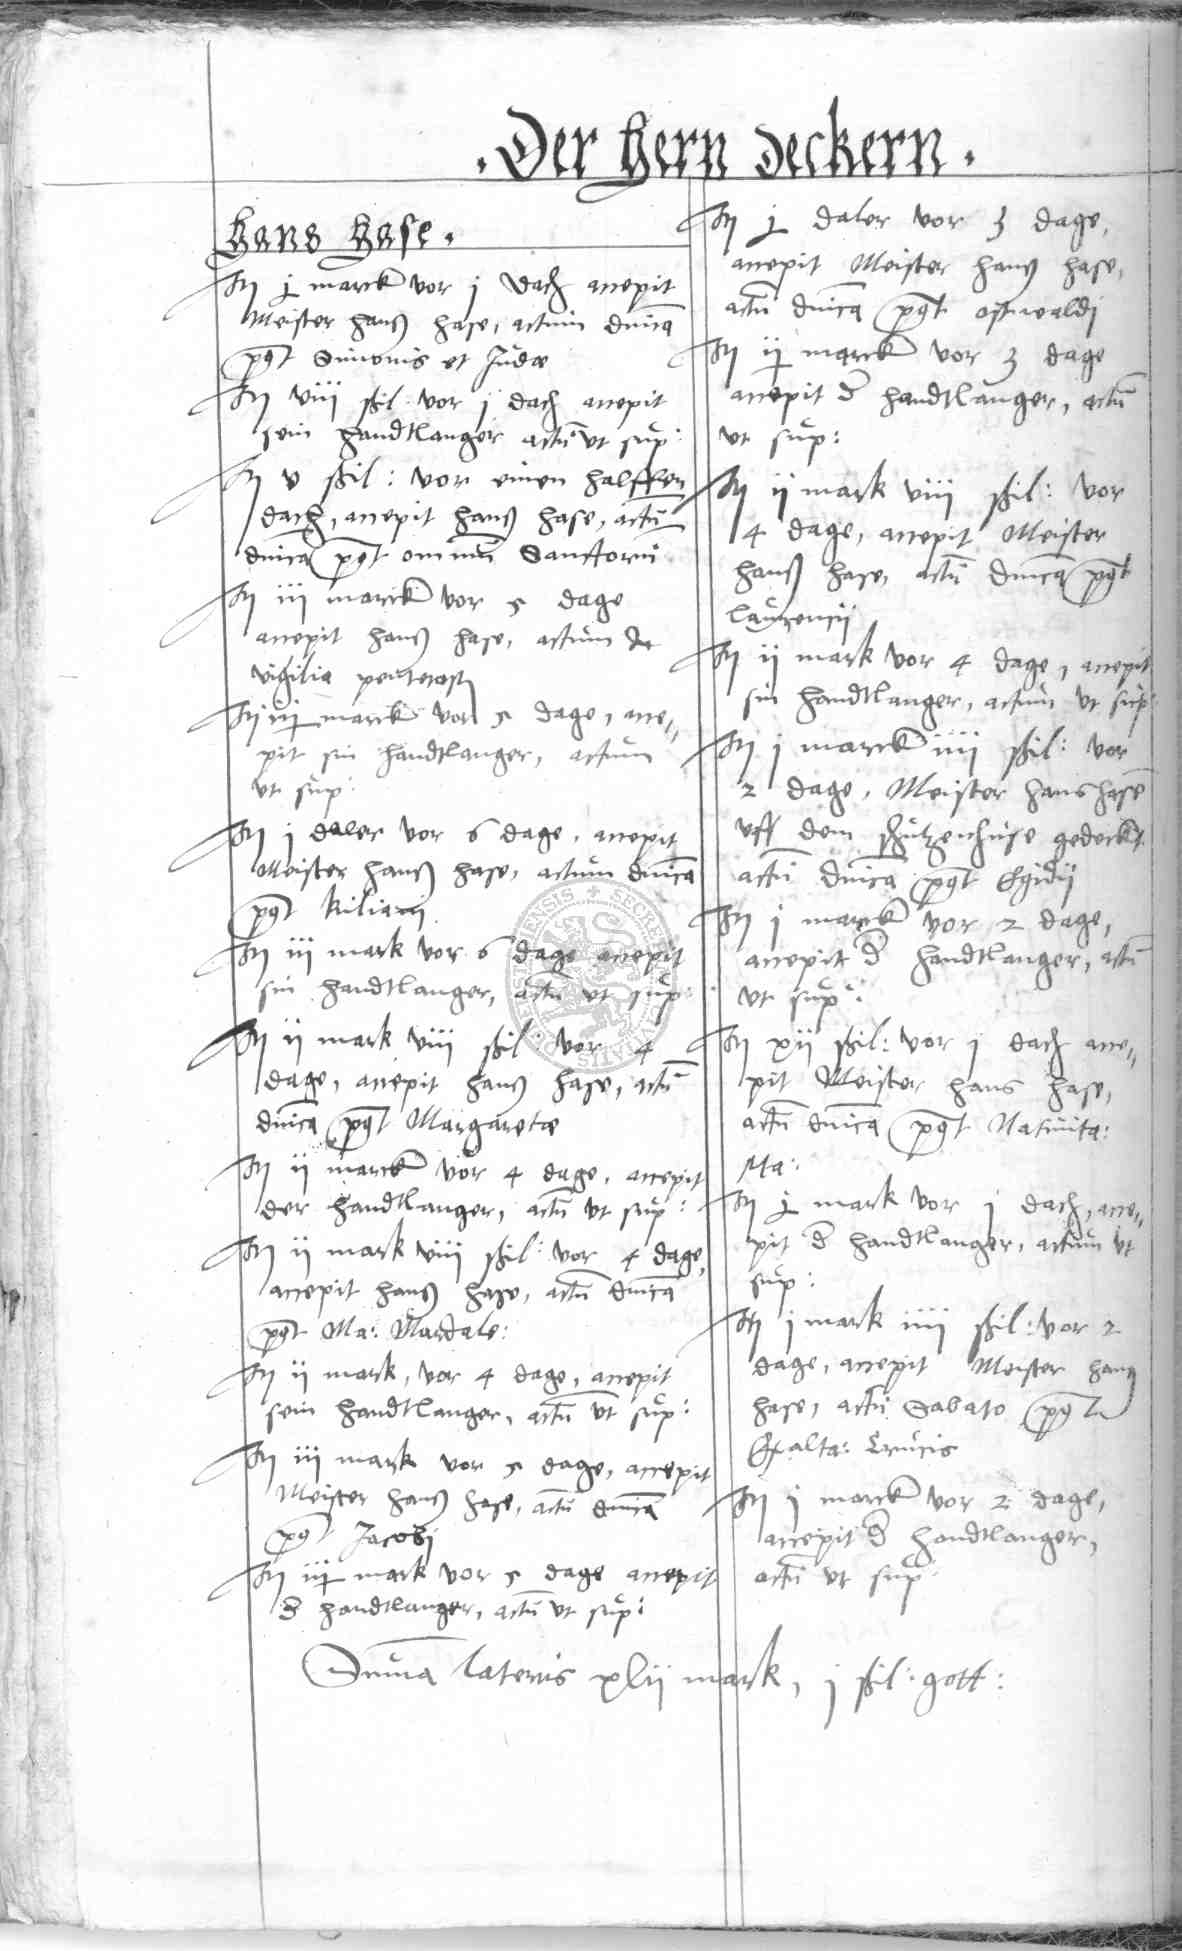 . Der hern deckern .
hans hase .
Itm j marck vor j dach accepit
Meister hanß hase, actum dnica
post Simonis et Judæ
Itm viij ßkil: vor j dach accepit
sein handtlanger actū ut sup:
Itm v ßkil: vor einen halffen
dach, accepit hanß hase, actū
dnica post omniū Sanctorū
Itm iij marck vor 5 dage
accepit hanß hase, actum
vigilia pentecost
Itm iij marck vor 5 dage, acce=
pit sin handtlanger, actum
ut sup:
Itm j daler vor 6 dage, accepit
Meister hanß hase, actum dnica
post kiliani
Itm iij mark vor 6 dage accepit
sin handtlanger, actū ut sup:
Itm ij mark viij ßkil: vor 4
dage, accepit hanß hase, actū
dnica post Margaretæ
Itm ij marck vor 4 dage, accepit
der handtlanger, actū ut sup:
Itm ij mark viij ßkil: vor 4 dage,
accepit hanß hase, actū dnica
post Ma: Mardale:
Itm ij mark, vor 4 dage, accepit
sein handtlanger, actū ut sup:
Itm iij mark vor 5 dage, accepit
Meister hanß hase, actū dnica
post Jacobi
Itm iij mark vor 5 dage accepit
d handtlanger, actū ut sup:
Itm j daler vor 3 dage,
accepit Meister hanß hase,
actū dnica post ostwaldj
Itm ij marck vor 3 dage
accepit d handtlanger, actū
ut sup:
Itm ij mark viij ßkil: vor
4 dage, accepit Meister
hanß hase, actū dnica post
laurencij
Itm ij mark vor 4 dage, accepit
sin handtlanger, actum ut sup:
Itm j marck iiij ßkil: vor
2 dage, Meister hans hase
uff dem schutzenhuse gedeckt
actū dnica post Egidij
Itm j marck vor 2 dage,
accepit d handtlanger, actū
ut sup:
Itm xij ßkil: vor j dach acce=
pit Meister hans hase,
actū dnica post Natiuita:
Ma:
Itm j mark vor j dach, acce=
pit d handtlanger, actum ut
sup:
Itm j mark iiij ßkil: vor 2
dage, accepit Meister hanß
hase, actū Sabato post
Exalta: Crucis
Itm j marck vor 2 dage,
accepit d handtlanger,
actū ut sup:
Suma lateris xlij mark, j ßkil: gott: